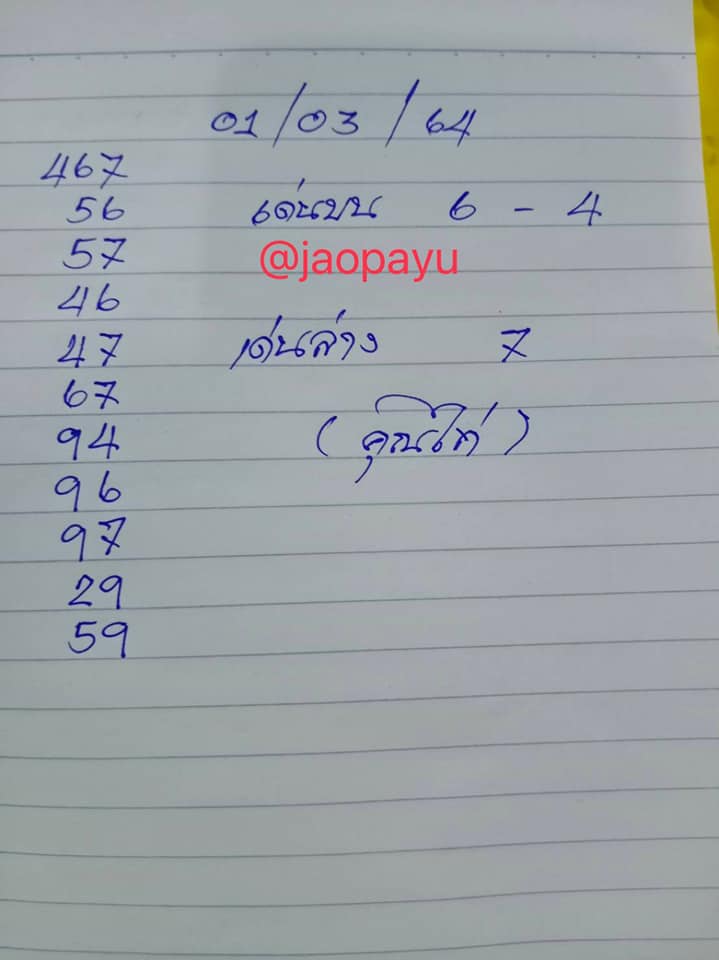 01/03/64
467
56
เด่นบน 6 - 4
57
@jaopayu
46
47
เด่นล่าง 7
67
94
(คุณไก่)
96
97
29
59